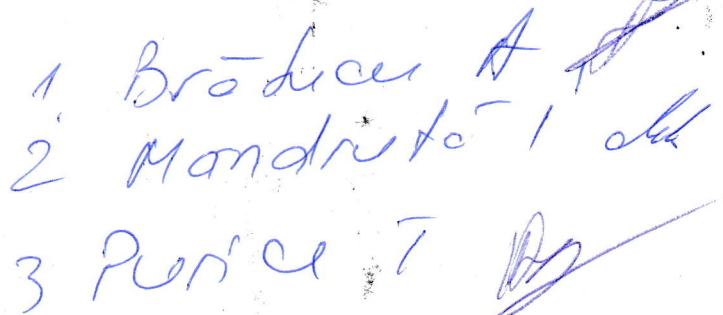 1. Brăducu A
2 Mandrută I
3 Purice T